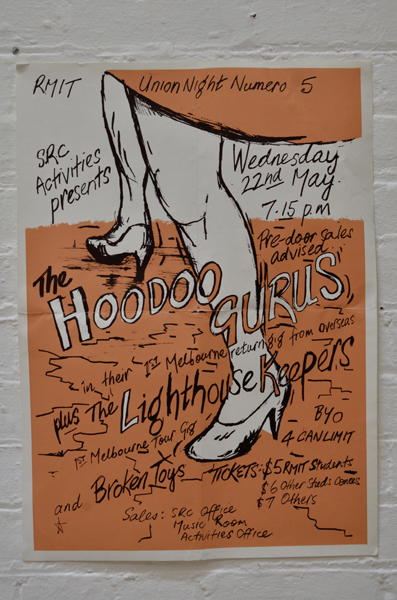 RMIT
Union Night Numero 5
SRC
Activities
presents
Wednesday
22nd May
7.15 p.m
Pre-door sales
advised
The
HOODOO GURUS
in their 1st Melbourne return gig from overseas
plus The Lighthouse Keepers
1st Melbourne Tour Gig
BYO
4 CAN LIMIT
and Broken Toys
TICKETS: $5 RMIT Students
$6 Other Studs
$7 Others
Sales: SRC Office
Music Room
Activities Office